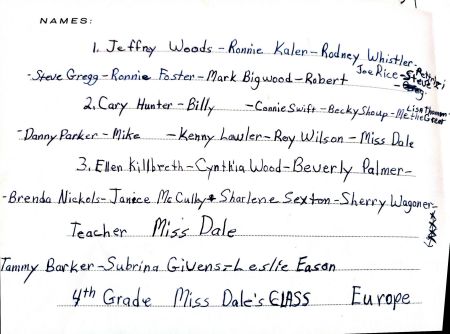 NAMES:
1. Jeffry Woods - Ronnie Kaler - Rodney Whistler -
Joe Rice - Steve
- Steve Gregg - Ronnie Foster - Mark Bigwood - Robert
2. Cary Hunter - Billy - Connie Swift - Becky Shoup -
Lisa
- Danny Parker - Mike - Kenny Lawler - Roy Wilson - Miss Dale
3. Ellen Killbreth - Cynthia Wood - Beverly Palmer -
- Brenda Nickols - Janice McCulby - Sharlene Sexton - Sherry Wagoner
Teacher Miss Dale
Tammy Barker - Subrina Givens - Leslie Eason
4th Grade Miss Dale's CLASS Europe